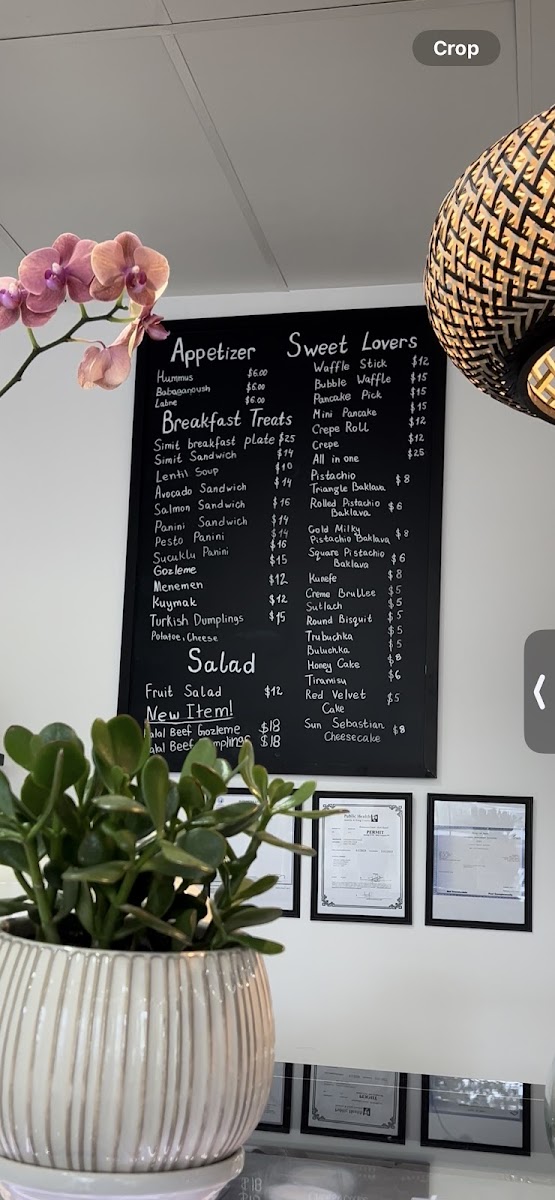 Crop
Appetizer
Hummus $6.00
Babaganoush $6.00
Labne $6.00
Breakfast Treats
Simit breakfast plate $25
Simit Sandwich $14
Lentil Soup $10
Avocado Sandwich $14
Salmon Sandwich $16
Panini Sandwich $14
Pesto Panini $14
Sucuklu Panini $16
Gozleme $15
Menemen $12
Kuymak $12
Turkish Dumplings $15
Potatoe, Cheese
Salad
Fruit Salad $12
New Item!
Halal Beef Gozleme $18
Halal Beef $18
Sweet Lovers
Waffle Stick $12
Bubble Waffle $15
Pancake Pick $15
Mini Pancake $15
Crepe Roll $12
Crepe $12
All in one $25
Pistachio
Triangle Baklava $8
Rolled Pistachio $6
Baklava
Gold Milky
Pistachio Baklava $8
Square Pistachio $6
Baklava
Kunefe $8
Creme Brullee $5
Sutlach $5
Round Bisquit $5
Trubuchka $5
Buluchka $5
Honey Cake $8
Tiramisu $6
Red Velvet $5
Cake
Sun Sebastian $8
Cheesecake
Public Health
PERMIT